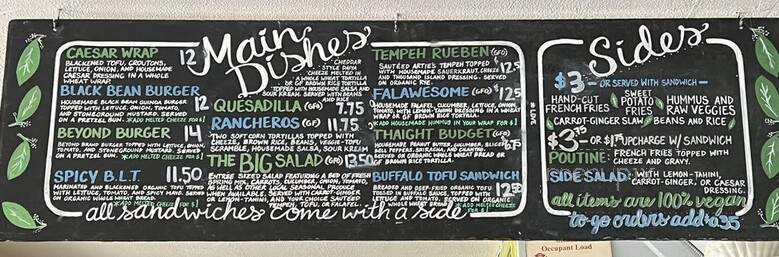 Main Dishes
CAESAR WRAP 12
BLACKENED TOFU, CROUTONS,
LETTUCE, ONION, AND HOUSEMADE
CAESAR DRESSING IN A WHOLE
WHEAT WRAP.
BLACK BEAN BURGER 12
HOUSEMADE BLACK BEAN QUINOA BURGER
TOPPED WITH LETTUCE, ONION, TOMATO,
AND STONEGROUND MUSTARD. SERVED
ON A PRETZEL BUN. *ADD MELTED CHEEZE FOR $1
BEYOND BURGER 14
BEYOND BRAND TOPPED WITH LETTUCE, ONION,
TOMATO, AND STONEGROUND MUSTARD. SERVED
ON A PRETZEL BUN. *ADD MELTED CHEEZE FOR $1
SPICY B.L.T. 11.50
MARINATED AND BLACKENED ORGANIC TOFU TOPPED
WITH LETTUCE, TOMATO, AND SPICY MAYO. SERVED
ON ORGANIC WHOLE WHEAT BREAD.
*ADD MELTED CHEEZE FOR $1
CHEDDAR
STYLE DAIYA
CHEEZE MELTED IN
A WHOLE WHEAT TORTILLA
OR GF BROWN RICE TORTILLA
TOPPED WITH HOUSEMADE SALSA AND
SOUR KREAM. SERVED WITH BEANS
AND RICE
QUESADILLA (GFO) 7.75
RANCHEROS (GF) 11.75
TWO SOFT CORN TORTILLAS TOPPED WITH
CHEEZE, BROWN RICE, BEANS, VEGGIE-TOFU
SCRAMBLE, HOUSEMADE SALSA, SOUR KREAM
THE BIG SALAD (GF) 13.50
ENTREE SIZED SALAD FEATURING A BED OF FRESH
SPRING MIX, CARROTS, CUCUMBER, ONION, TOMATO,
AS WELL AS OTHER LOCAL SEASONAL PRODUCE
WHEN AVAILABLE. SERVED WITH CARROT-GINGER
OR LEMON-TAHINI, AND YOUR CHOICE SAUTEED
TEMPEH, TOFU, OR FALAFEL.
TEMPEH RUEBEN (GFO) $12.5
SAUTÉED ARTIE'S TEMPEH TOPPED
WITH HOUSEMADE SAUERKRAUT, CHEEZE
AND THOUSAND ISLAND DRESSING. SERVED
ON ORGANIC RYE.
FALAWESOME (GFO) $12.5
HOUSEMADE FALAFEL, CUCUMBER, LETTUCE, ONION,
TOMATO, WITH LEMON-TAHINI DRESSING IN A WHEAT
WRAP OR GF BROWN RICE TORTILLA.
*ADD HOUSEMADE HUMMUS IN YOUR WRAP FOR $1
THAIGHT BUDGET (GFO) 6.75
HOUSEMADE PEANUT BUTTER, CUCUMBER, SLICED
BELL PEPPERS, SRIRACHA, AND CILANTRO.
SERVED ON ORGANIC WHOLE WHEAT BREAD OR
BROWN RICE TORTILLA.
BUFFALO TOFU SANDWICH 12.50
BREADED AND DEEP-FRIED ORGANIC TOFU
TOSSED IN BUFFALO SAUCE, TOPPED WITH
LETTUCE AND TOMATO. SERVED ON ORGANIC
WHOLE WHEAT BREAD. *ADD MELTED CHEEZE FOR $1
all sandwiches come with a side
Sides
$3 - OR SERVED WITH SANDWICH -
HAND-CUT FRENCH FRIES
SWEET POTATO FRIES
HUMMUS AND RAW VEGGIES
CARROT-GINGER SLAW BEANS AND RICE
$3.75 - OR $1.75 UPCHARGE W/ SANDWICH
POUTINE: FRENCH FRIES TOPPED WITH
CHEEZE AND GRAVY.
SIDE SALAD: WITH LEMON-TAHINI,
CARROT-GINGER, OR CAESAR
DRESSING.
all items are 100% vegan
to-go orders add 0.35
Occupant Load